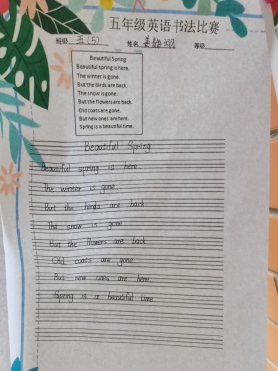 五年级英语书法比赛
班级 五(5) 姓名 等级
Beautiful Spring
Beautiful spring is here.
The winter is gone.
But the birds are back.
The snow is gone.
But the flowers are back.
Old coats are gone.
But new ones are here.
Spring is a beautiful time.
Beautiful Spring
Beautiful spring is here.
The winter is gone.
But the birds are back
The snow is gone.
But the flowers are back
Old coats are gone
But new ones are here.
Spring is a beautiful time.